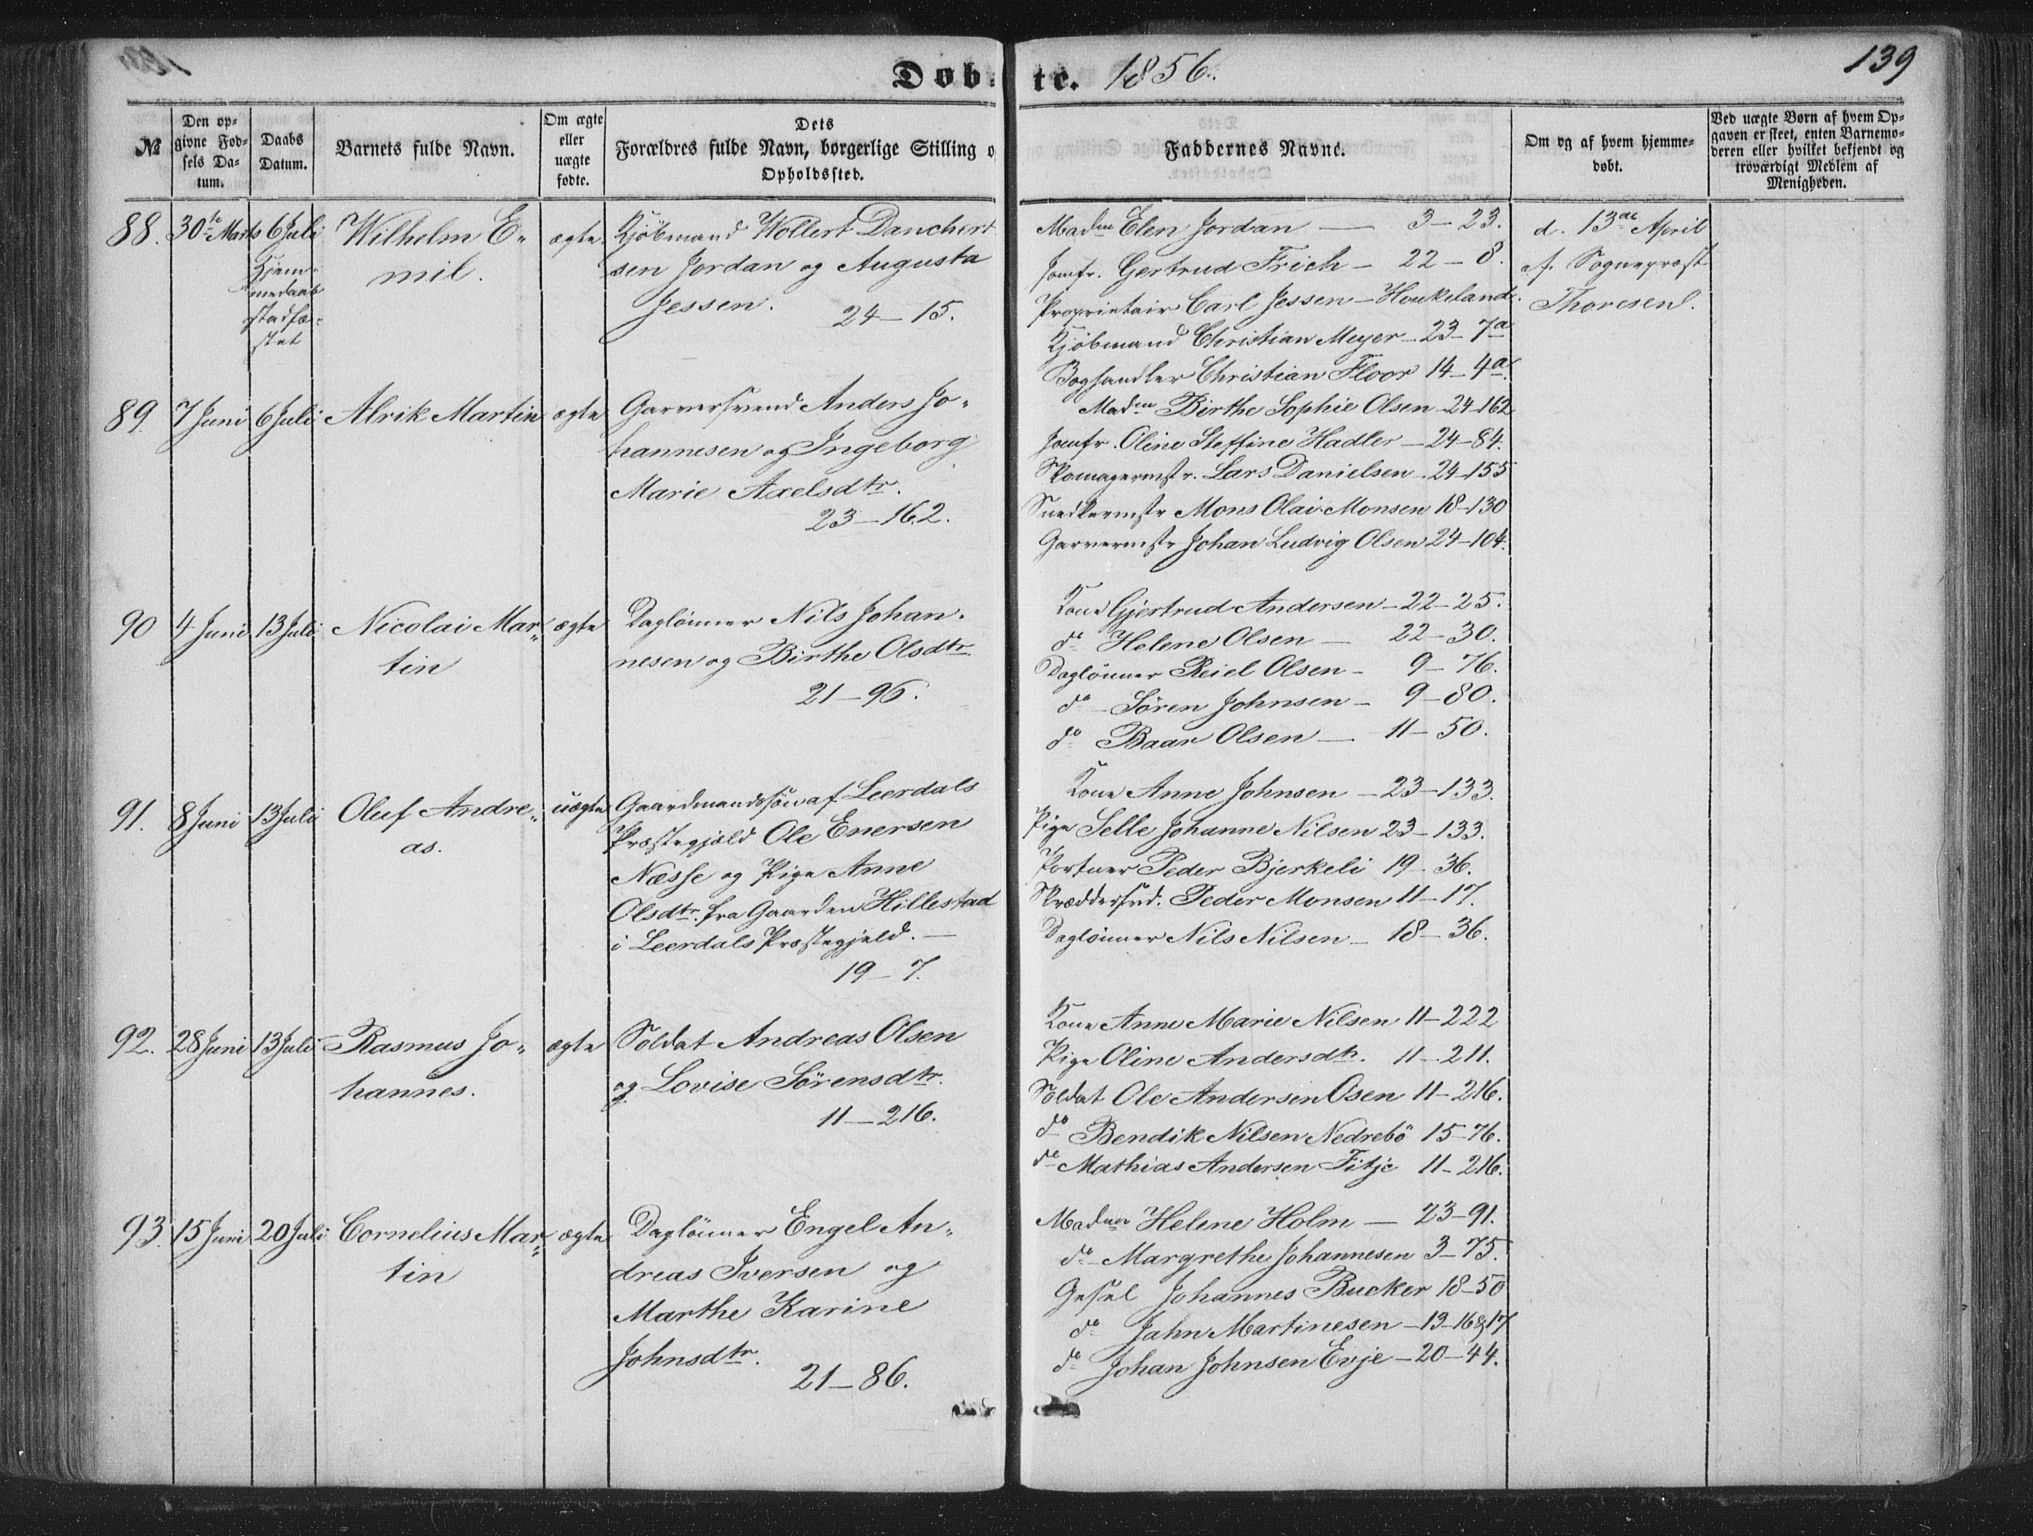 Døbte. 1856.
139
№
Den opgivne Fødsels Datum.
Daabs Datum.
Barnets fulde Navn.
Om ægte eller uægte fødte.
Dets Forældres fulde Navn, borgerlige Stilling o
Opholdssted.
Faddernes Navne.
Om og af hvem hjemmedøbt.
Ved uægte Børn af hvem Opgaven er skeet, enten Barnemoderen eller hvilket bekjendt og troværdigt Medlem af Menigheden.
88. 30te Marts 6 Juli Wilhelm E- ægte Kjøbmand Wollert Danchert
Hjem-
medaab
stadfæ-
stet
mil.
sen Jordan og Augusta
Jessen. 24–15.
Madm Elen Jordan — 3–23.
Jomfr. Gertrud Frich – 22–8.
Proprietair Carl Jessen – Houkeland.
Kjöbmand Christian Meyer – 23–7a
Boghandler Christian Floor 14–4a.
d. 13de April
af Sognepræst
Thoresen.
89. 7 Juni 6 Juli Alrik Martin ægte Garversvend Anders Jo-
hannesen og Ingeborg
Marie Axelsdtr.
23–162.
Madm Birthe Sophie Olsen 24–162
Jomfr. Oline Steffine Hadler – 24–84.
Skomagermstr. Lars Danielsen 24–155
Snedkermstr Mons Olai Monsen 18–130
Garvermstr Johan Ludvig Olsen 24–104.
90 4 Juni 13 Juli Nicolai Mar- ægte Daglönner Nils Johan-
tin
nesen og Birthe Olsdtr.
21–96.
Kone Gjertrud Andersen – 22–25.
do Helene Olsen — 22–30.
Daglönner Reiel Olsen – 9–76.
do – Sören Johnsen – 9–80.
do Baar Olsen — 11–50.
91. 8 Juni 13 Juli Oluf Andre- uægte Gaardmandssön af Leerdals
as.
Præstegjæld Ole Enersen
Næsse og Pige Anne
Olsdtr. fra Gaarden Hillestad
i Leerdals Præstegjeld. —
19–7.
Kone Anne Johnsen – 23–133.
Pige Selle Johanne Nilsen 23–133.
Portner Peder Bjerkeli 19–36.
Skræddersvd. Peder Monsen 11–17.
Daglönner Nils Nilsen – 18–36.
92. 28 Juni 13 Juli Rasmus Jo- ægte Soldat Andreas Olsen
hannes.
og Lovise Sörensdtr.
11–216.
Kone Anne Marie Nilsen 11–222
Pige Oline Andersdtr. 11–211.
Soldat Ole Andersen Osen 11–216.
do Bendik Nilsen Nedrebö 15–76.
do Mathias Andersen Fitje 11–216.
93. 15 Juni 20 Juli Cornelius Mar- ægte Daglönner Engel An-
tin
dreas Iversen og
Marthe Karine
Johnsdtr.
21–86.
Madm Helene Holm — 23–91.
do – Margrethe Johannesen 3–75.
Gesel Johannes Bucker 18–50
do Jahn Martinesen – 13–16&17
do Johan Johnsen Evje – 20–44.